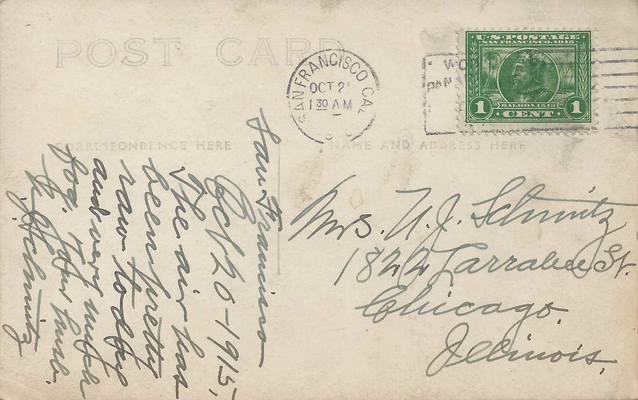 POST CARD
SAN FRANCISCO CAL
OCT 21
1 30 AM
U.S. POSTAGE
SAN FRANCISCO 1915
BALBOA 1513
1 CENT 1
CORRESPONDENCE HERE
NAME AND ADDRESS HERE
San Francisco
Oct 20-1915,
The air has
been pretty
raw today
and very much
fog. Your husb.
N. J. Schmitz
Mrs. N. J. Schmitz
1822 Larrabee St.
Chicago,
Illinois,